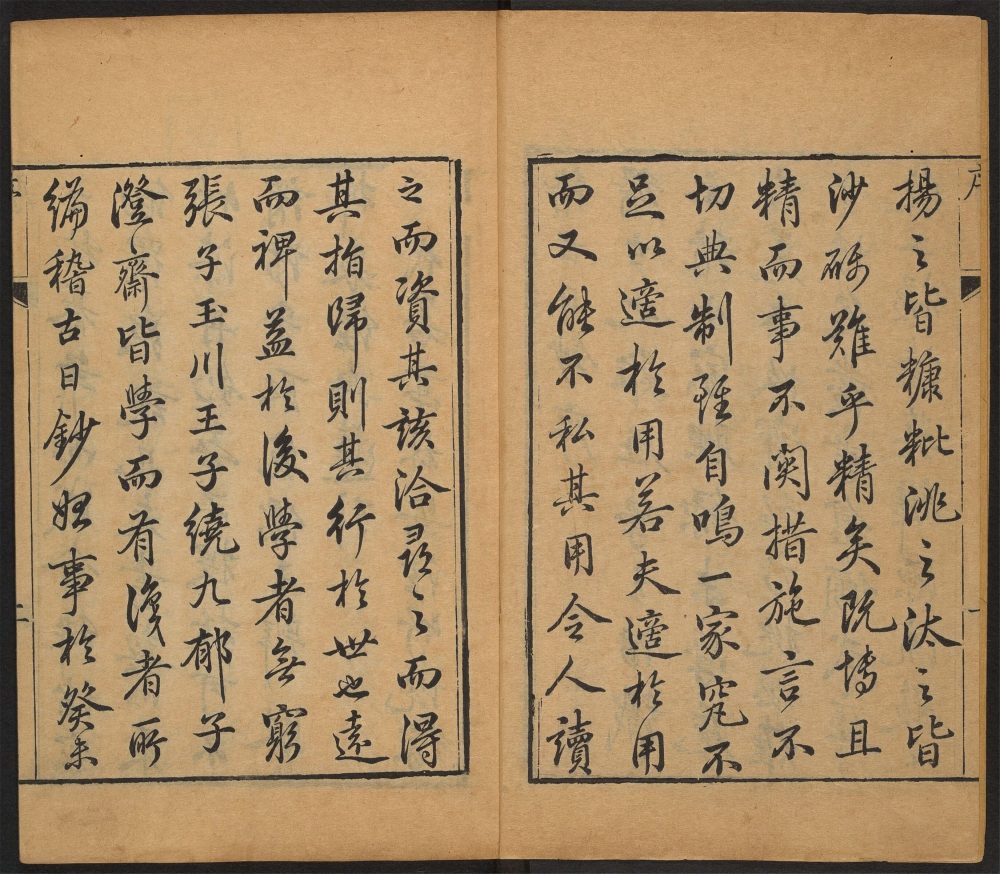 序
揚之皆糠粃洮之汰之皆
沙礫難乎精矣既博且
精而事不関措施言不
切典制雖自鳴一家究不
足以適於用若夫適於用
而又能不私其用令人讀
一
之而資其該洽尋之而得
其指歸則其行於世也遠
而裨益於後學者無窮
張子玉川王子繞九郁子
澄齋皆學而有獲者所
編稽古日鈔始事於癸未
二